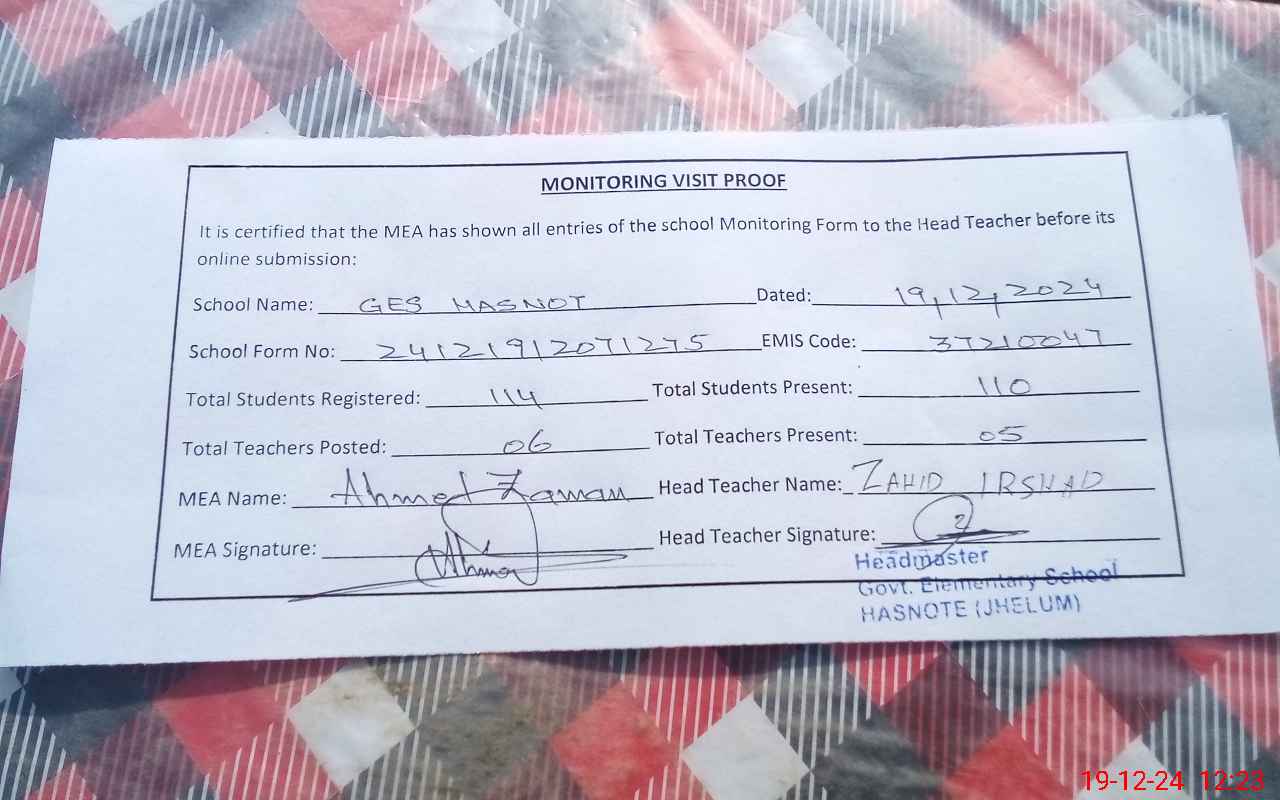 MONITORING VISIT PROOF
It is certified that the MEA has shown all entries of the school Monitoring Form to the Head Teacher before its
online submission:
School Name: GES HASNOT Dated: 19,12,2024
School Form No: 24121912071275 EMIS Code: 37210047
Total Students Registered: 114 Total Students Present: 110
Total Teachers Posted: 06 Total Teachers Present: 05
MEA Name: Ahmed Zaman Head Teacher Name: ZAHID IRSHAD
MEA Signature: Ahmed Head Teacher Signature:
Headmaster
Govt. Elementary School
HASNOTE (JHELUM)
19-12-24 12:23